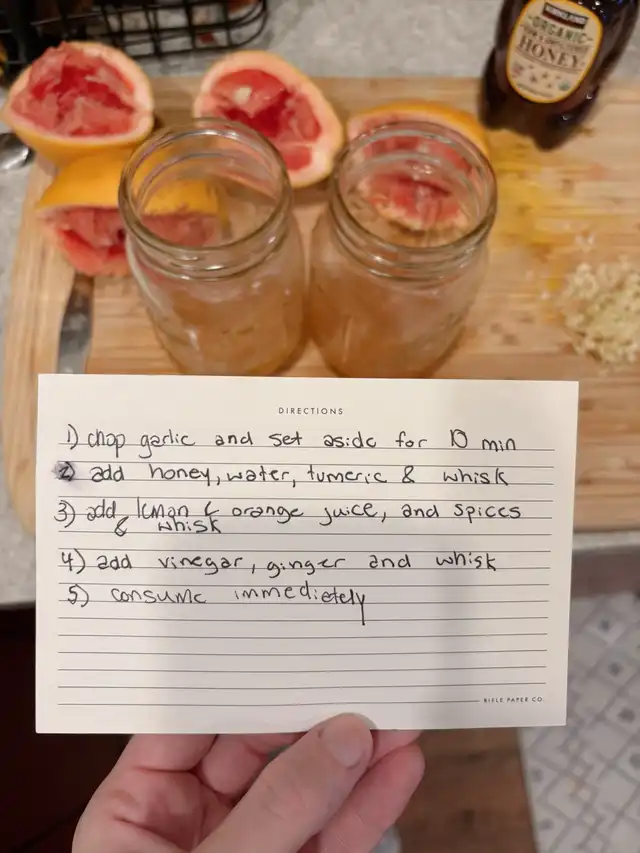 KIRKLAND
ORGANIC
HONEY
DIRECTIONS
1) chop garlic and set aside for 10 min
2) add honey, water, tumeric & whisk
3) add leman & orange juice, and spices
& whisk
4) add vinegar, ginger and whisk
5) consume immedietely
RIFLE PAPER CO.